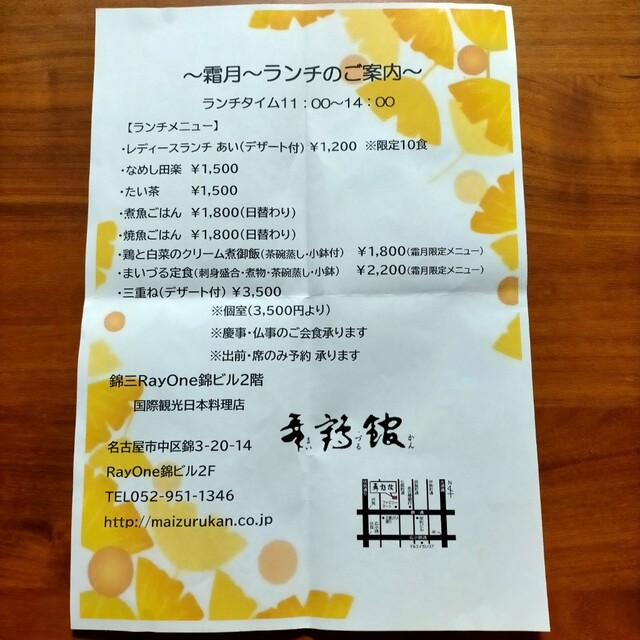 ～霜月～ランチのご案内～
ランチタイム11：00～14：00
【ランチメニュー】
・レディースランチ あい(デザート付) ¥1,200 ※限定10食
・なめし田楽 ¥1,500
・たい茶 ¥1,500
・煮魚ごはん ¥1,800(日替わり)
・焼魚ごはん ¥1,800(日替わり)
・鶏と白菜のクリーム煮御飯(茶碗蒸し・小鉢付) ¥1,800(霜月限定メニュー)
・まいづる定食(刺身盛合・煮物・茶碗蒸し・小鉢) ¥2,200(霜月限定メニュー)
・三重ね(デザート付) ¥3,500
※個室(3,500円より)
※慶事・仏事のご会食承ります
※出前・席のみ予約 承ります
錦三RayOne錦ビル2階
国際観光日本料理店
舞鶴館
まい づる かん
名古屋市中区錦3-20-14
RayOne錦ビル2F
TEL052-951-1346
http://maizurukan.co.jp
N